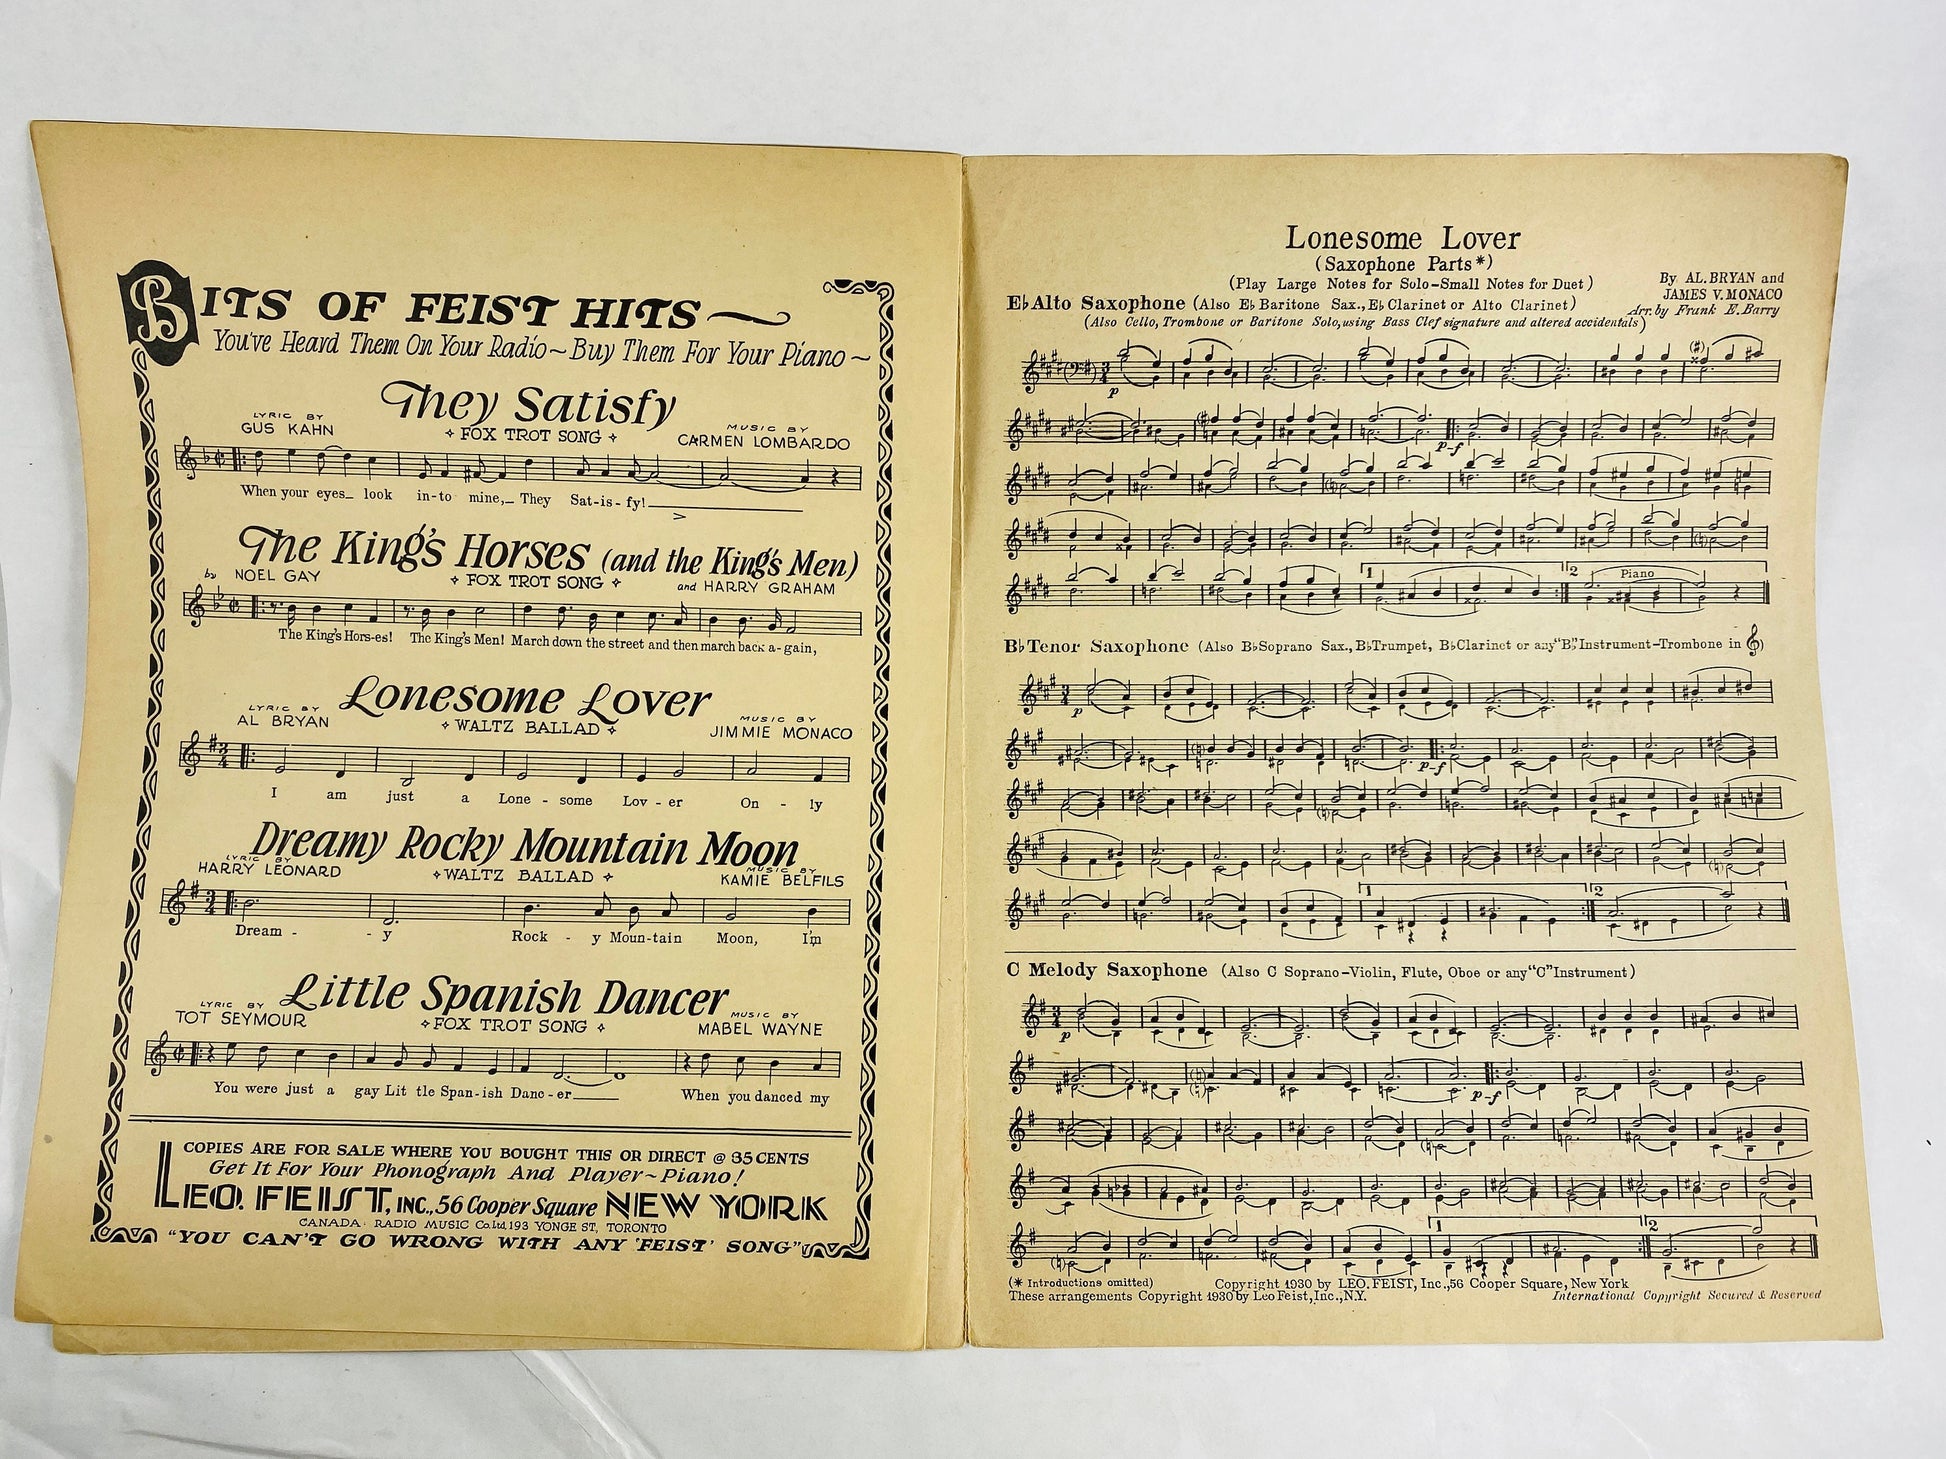 BITS OF FEIST HITS
You've Heard Them On Your Radio~Buy Them For Your Piano~
They Satisfy
LYRIC BY
GUS KAHN
FOX TROT SONG
MUSIC BY
CARMEN LOMBARDO
When your eyes_ look in-to mine,_ They Sat-is-fy!
The King's Horses (and the King's Men)
by NOEL GAY
FOX TROT SONG
and HARRY GRAHAM
The King's Hors-es! The King's Men! March down the street and then march back a-gain,
Lonesome Lover
LYRIC BY
AL BRYAN
WALTZ BALLAD
MUSIC BY
JIMMIE MONACO
I am just a Lone - some Lov - er On - ly
Dreamy Rocky Mountain Moon
LYRIC BY
HARRY LEONARD
WALTZ BALLAD
MUSIC BY
KAMIE BELFILS
Dream - - y Rock - y Moun-tain Moon, I'm
Little Spanish Dancer
LYRIC BY
TOT SEYMOUR
FOX TROT SONG
MUSIC BY
MABEL WAYNE
You were just a gay Lit tle Span-ish Danc-er When you danced my
COPIES ARE FOR SALE WHERE YOU BOUGHT THIS OR DIRECT @ 35 CENTS
Get It For Your Phonograph And Player~Piano!
LEO. FEIST, INC., 56 Cooper Square NEW YORK
CANADA: RADIO MUSIC Co. Ltd, 193 YONGE ST., TORONTO
"YOU CAN'T GO WRONG WITH ANY 'FEIST' SONG"
Lonesome Lover
(Saxophone Parts*)
(Play Large Notes for Solo-Small Notes for Duet)
By AL. BRYAN and
JAMES V. MONACO
Arr. by Frank E. Barry
E♭ Alto Saxophone (Also E♭ Baritone Sax., E♭ Clarinet or Alto Clarinet)
(Also Cello, Trombone or Baritone Solo, using Bass Clef signature and altered accidentals)
3/4
p
p-f
1
2
Piano
B♭ Tenor Saxophone (Also B♭ Soprano Sax., B♭ Trumpet, B♭ Clarinet or any "B♭" Instrument-Trombone in 𝄞)
3/4
p
p-f
1
2
C Melody Saxophone (Also C Soprano-Violin, Flute, Oboe or any "C" Instrument)
3/4
p
p-f
1
2
(* Introductions omitted)
Copyright 1930 by LEO. FEIST, Inc., 56 Cooper Square, New York
These arrangements Copyright 1930 by Leo Feist, Inc., N.Y.
International Copyright Secured & Reserved